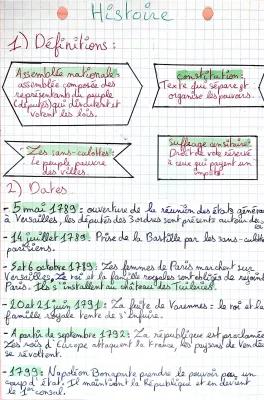 Histoire
1) Définitions :
Assemblée nationale :
assemblée composée des
représentants du peuple
(députés) qui discutent et
votent les lois.
constitution :
Texte qui sépare et
organise les pouvoirs.
Les sans-culottes :
Le peuple pauvre
des villes.
Suffrage censitaire :
Droit de vote réservé
à ceux qui payent un
impôt.
2) Dates
- 5 mai 1789 : ouverture de la réunion des états généraux
à Versailles, les députés des 3 ordres sont présents autour du
- 14 juillet 1789 : Prise de la Bastille par les sans-culottes
parisiens.
- 5 et 6 octobre 1789 : Les femmes de Paris marchent sur
Versailles. Le roi et la famille royales sont obligés de rejoindre
Paris. Ils s'installent au château des Tuileries.
- 20 et 21 juin 1791 : La fuite de Varennes : le roi et la
famille royale tente de s'enfuire.
- A partir de septembre 1792 : La république est proclamée
Les rois d'Europe attaquent la France, les paysans de Vendée
se révoltent.
- 1799 : Napoléon Bonaparte prendre le pouvoir par un
coup d'état. Il maintient la République et en devient
le 1er consul.